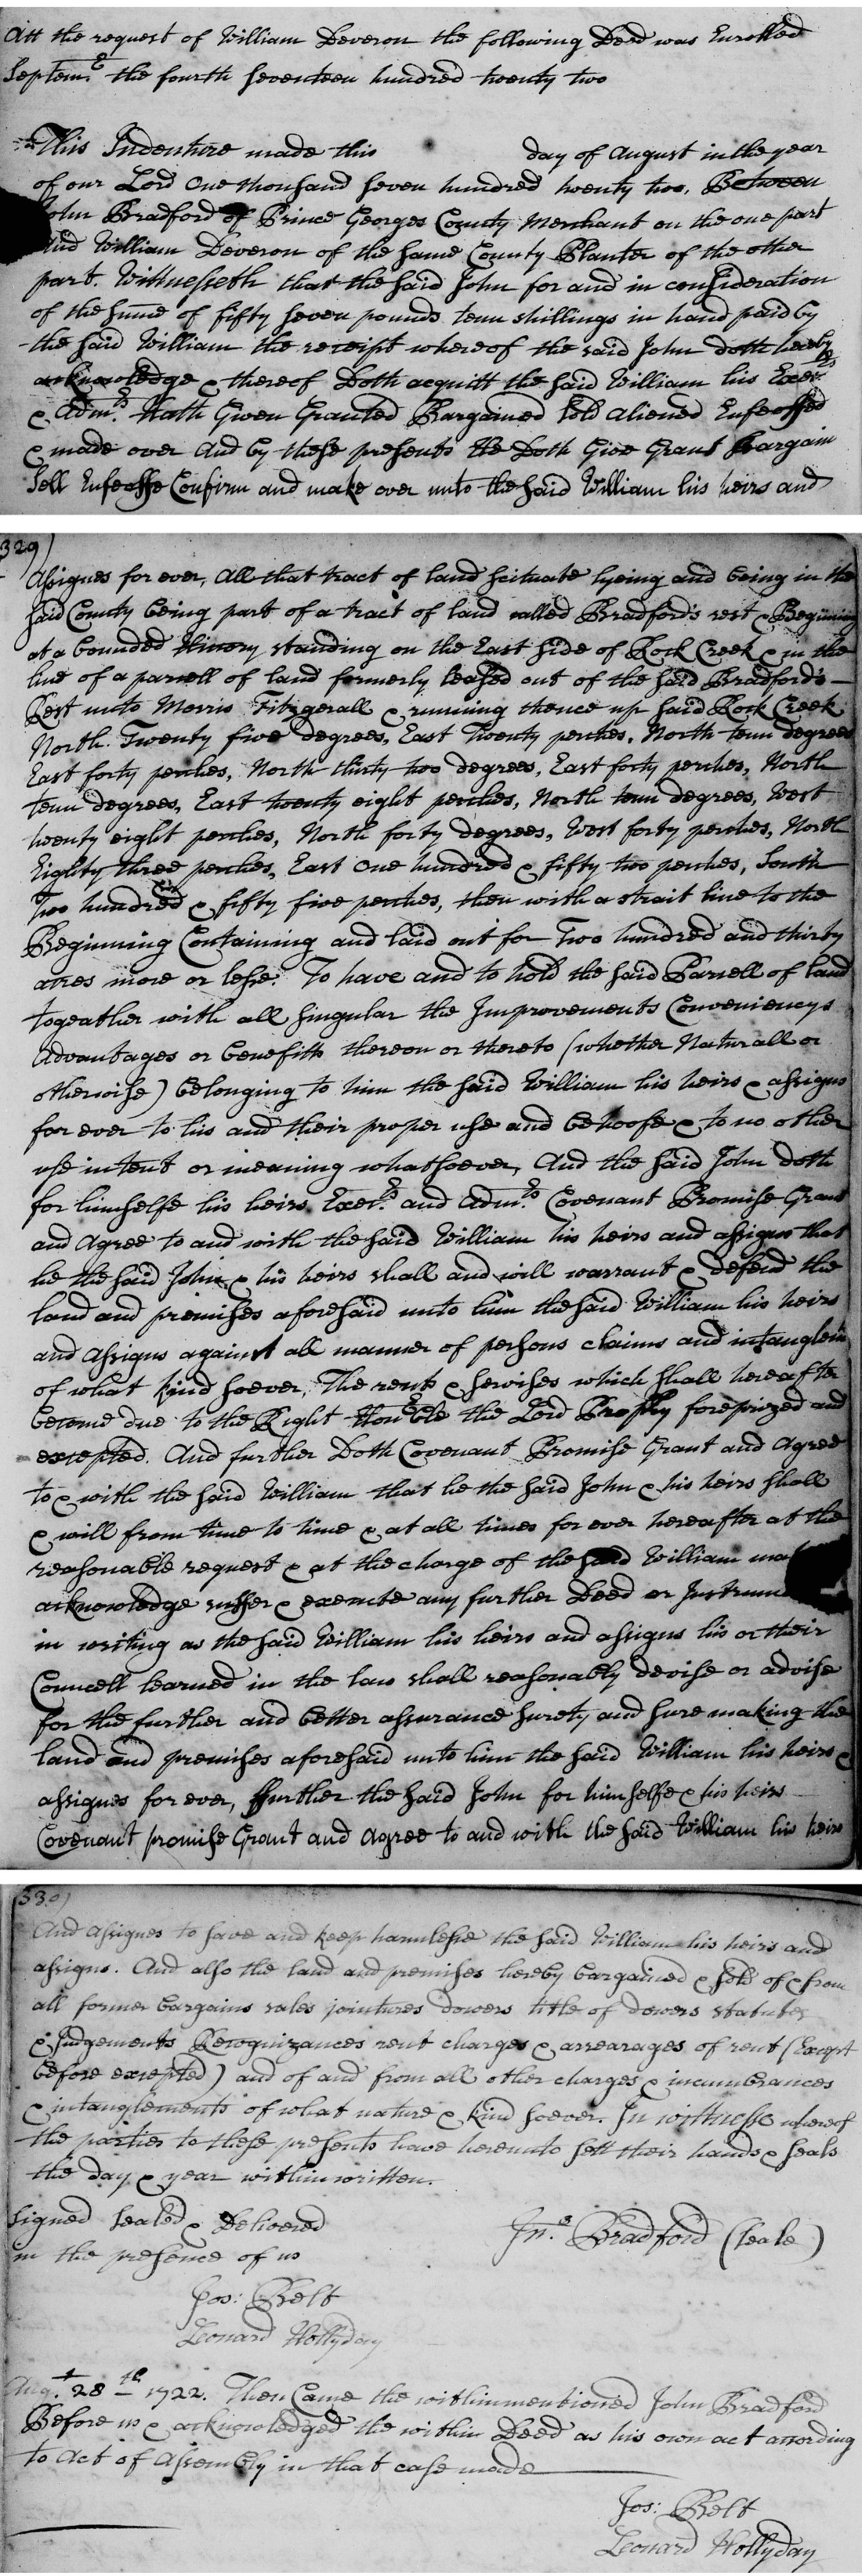 Att the request of William Deveron the following Deed was Enrolled
Septem.r the fourth Seventeen hundred twenty two
This Indenture made this day of August in the year
of our Lord One thousand Seven hundred twenty two, Between
John Bradford of Prince Georges County Merchant on the one part
And William Deveron of the same County Planter of the other
part. Witnesseth that the said John for and in consideration
of the sume of fifty seven pounds tenn shillings in hand paid by
the said William the receipt whereof the said John doth hereby
acknowledge & thereof Doth acquitt the said William his Exec.rs
& Adm.rs Hath Given Granted Bargained Sold aliened Enfeoffed
& made over And by these presents He Doth Give Grant Bargain
Sell Enfeoffe Confirm and make over unto the said William his heirs and
329)
Assignes for ever, All that tract of land scituate lyeing and being in the
said County being part of a tract of land called Bradford's rest & Begining
at a bounded Hicory standing on the East side of Rock Creek & in the
line of a parcell of land formerly leased out of the said Bradford's
Rest unto Morris Fitzgerall & running thence up said Rock Creek
North Twenty five degrees, East Twenty perches, North tenn degrees
East forty perches, North thirty two degrees, East forty perches, North
tenn degrees, East twenty eight perches, North tenn degrees, West
twenty eight perches, North forty degrees, West forty perches, North
Eighty three perches, East One hundred & fifty two perches, South
Two hundred & fifty five perches, then with a strait line to the
Beginning Containing and laid out for Two hundred and thirty
acres more or lesse. To have and to hold the said Parcell of land
togeather with all singular the Improvements Conveniencys
Advantages or benefits thereon or thereto (whether Naturall or
otherwise) belonging to him the said William his heirs & assigns
for ever to his and their proper use and behoofe & to no other
use intent or meaning whatsoever, And the said John doth
for himselfe his heirs Exec.rs and Adm.rs Covenant Promise Grant
and Agree to and with the said William his heirs and assigns that
he the said John & his heirs shall and will warrant & defend the
land and premises aforesaid unto him the said William his heirs
and assigns against all manner of persons claims and intanglem
of what kind soever, The rents & servises which shall hereafter
become due to the Right Hon.ble the Lord Prop.ry foreprized and
excepted. And further Doth Covenant Promise Grant and Agree
to & with the said William that he the said John & his heirs shall
& will from time to time & at all times for ever hereafter at the
reasonable request & at the charge of the said William
acknowledge suffer & execute any further Deed or Instrum
in writing as the said William his heirs and assigns his or their
Councell learned in the law shall reasonably devise or advise
for the further and better assurance surety and sure making the
land and premises aforesaid unto him the said William his heirs &
assignes for ever, ffurther the said John for himselfe & his heirs
Covenant promise Grant and Agree to and with the said William his heirs
330)
And assignes to save and keep harmlesse the said William his heirs and
assigns. And also the land and premises hereby bargained & sold of & from
all former bargains sales jointures dowers title of dowers statutes
& Judgements Recognizances rent charges & arrearages of rent (Except
before excepted) and of and from all other charges & incumbrances
& intanglements of what nature & kind soever. In witnesse whereof
the parties to these presents have hereunto sett their hands & seals
the day & year within written.
Signed Sealed & Delivered
in the presence of us
Jn.o Bradford (seale)
Jos: Belt
Leonard Hollyday
Aug.t 28th 1722. Then Came the withinmentioned John Bradford
Before us & acknowledged the within Deed as his own act according
to Act of Assembly in that case made
Jos: Belt
Leonard Hollyday